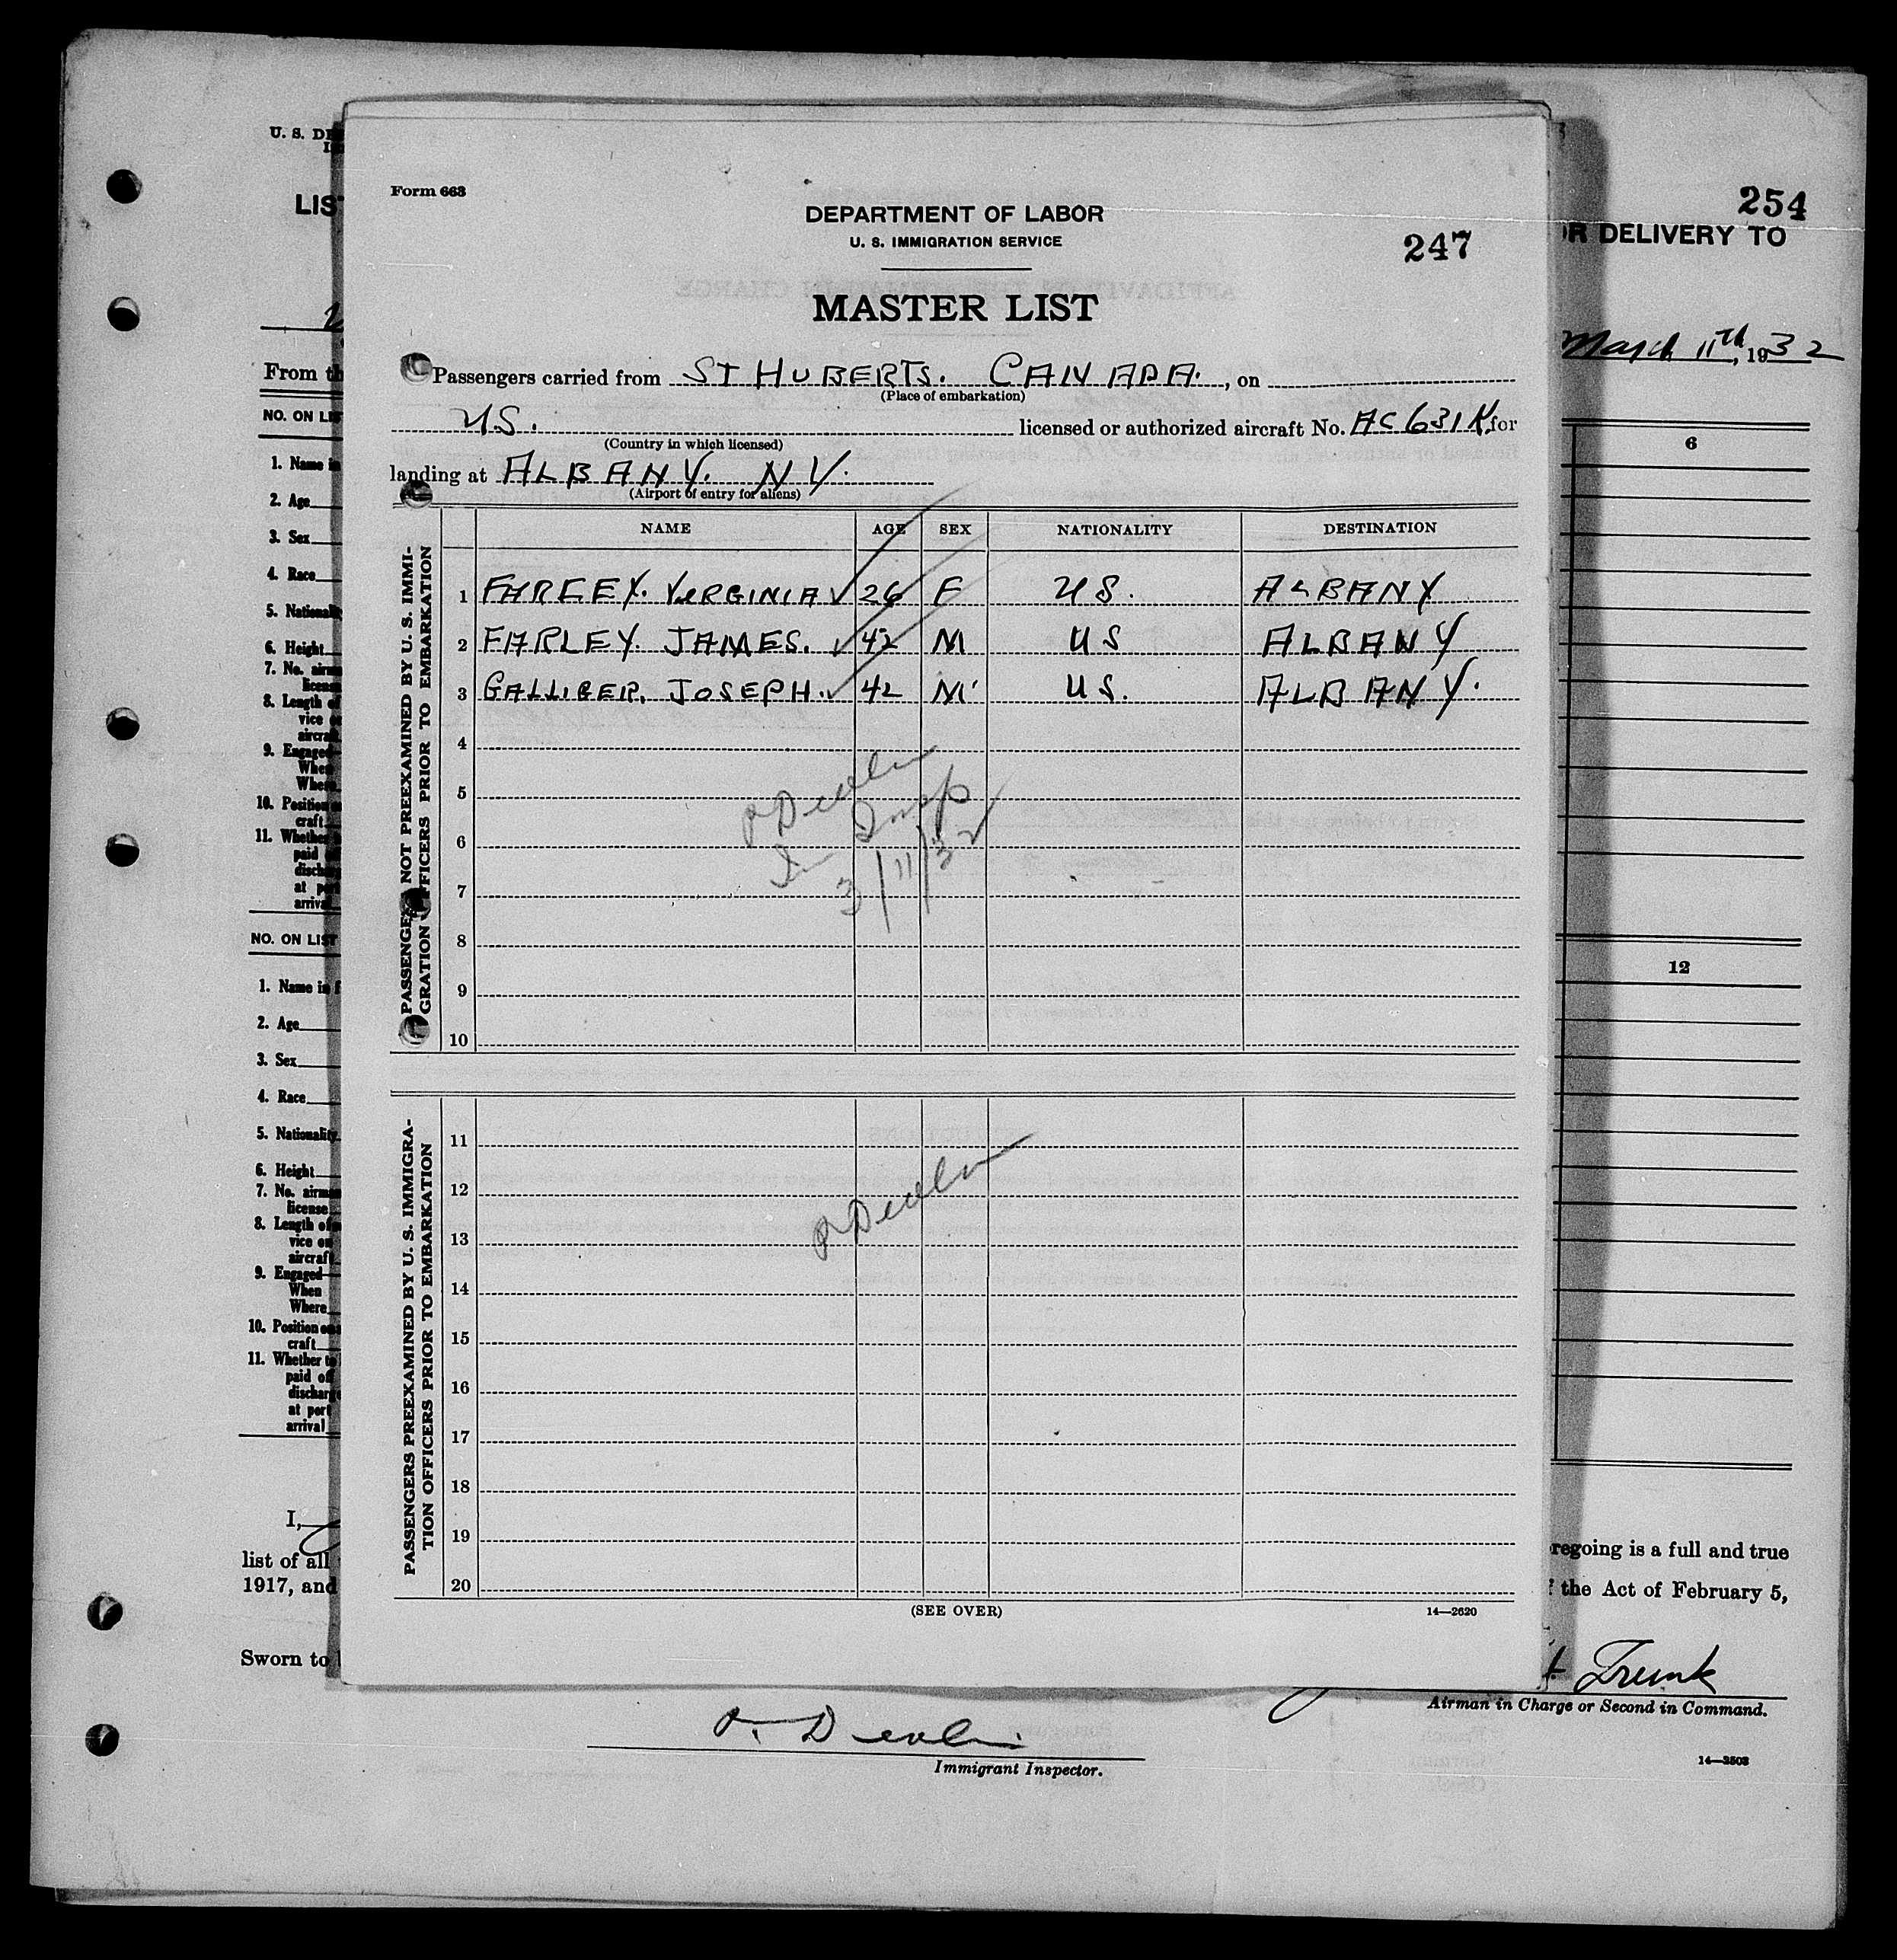 254
OR DELIVERY TO
March 11th, 1932
6
12
regoing is a full and true
the Act of February 5,
Trunk
Airman in Charge or Second in Command.
14—3503
Form 663
DEPARTMENT OF LABOR
U. S. IMMIGRATION SERVICE
247
MASTER LIST
Passengers carried from ST HUBERTS. CANADA., on
(Place of embarkation)
US. licensed or authorized aircraft No. AC 631K for
(Country in which licensed)
landing at ALBANY. NY.
(Airport of entry for aliens)
NAME AGE SEX NATIONALITY DESTINATION
PASSENGERS NOT PREEXAMINED BY U. S. IMMI-
GRATION OFFICERS PRIOR TO EMBARKATION
1 FARLEY. VIRGINIA 26 F US. ALBANY
2 FARLEY. JAMES. 42 M US ALBANY
3 GALLIGER. JOSEPH. 42 M US. ALBANY.
4
5
6
7
8
9
10
Devlin
Im Insp
3/11/32
PASSENGERS PREEXAMINED BY U. S. IMMIGRA-
TION OFFICERS PRIOR TO EMBARKATION
11
12
13
14
15
16
17
18
19
20
Devlin
(SEE OVER) 14—2620
U. S. DE
LIS
From th
NO. ON LIS
1. Name in
2. Age
3. Sex
4. Race
5. National
6. Height
7. No. airma
license
8. Length of
vice o
aircra
9. Engaged
When
Where
10. Position
craft
11. Whether
paid
disch
at po
arriva
NO. ON LIST
1. Name in f
2. Age
3. Sex
4. Race
5. Nationality
6. Height
7. No. airman
license
8. Length of
vice on
aircraft
9. Engaged
When
Where
10. Position on
craft
11. Whether to
paid of
discharg
at port
arrival
I,
list of all
1917, and
Sworn to
Devlin
Immigrant Inspector.